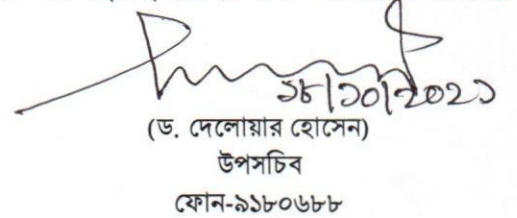 ১৮/১০/২০২১
(ড. দেলোয়ার হোসেন)
উপসচিব
ফোন-৯১৮০৬৮৮